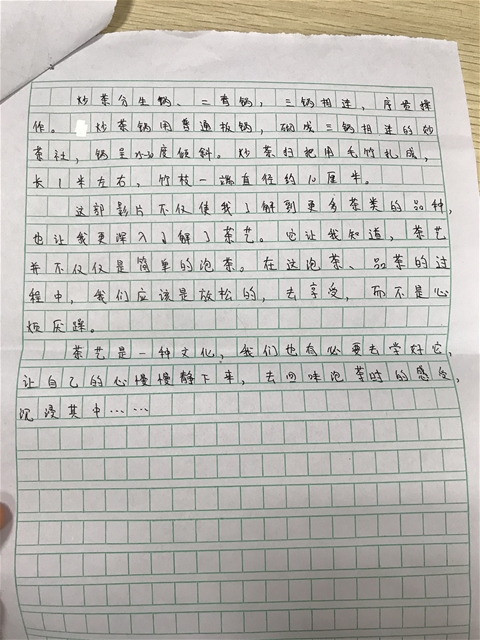 炒茶分生锅、二青锅，三锅相连，序贯操
作。炒茶锅用普通板锅，砌成三锅相连的炒
茶灶，锅呈25-30度倾斜。炒茶扫把用毛竹扎成，
长1米左右，竹枝一端直径约10厘米。
这部影片不仅使我了解到更多茶类的品种，
也让我更深入了解了茶艺。它让我知道，茶艺
并不仅仅是简单的泡茶。在这泡茶、品茶的过
程中，我们应该是放松的，去享受，而不是心
烦厌躁。
茶艺是一种文化，我们也有必要去学好它，
让自己的心慢慢静下来，去回味泡茶时的感受，
沉浸其中……